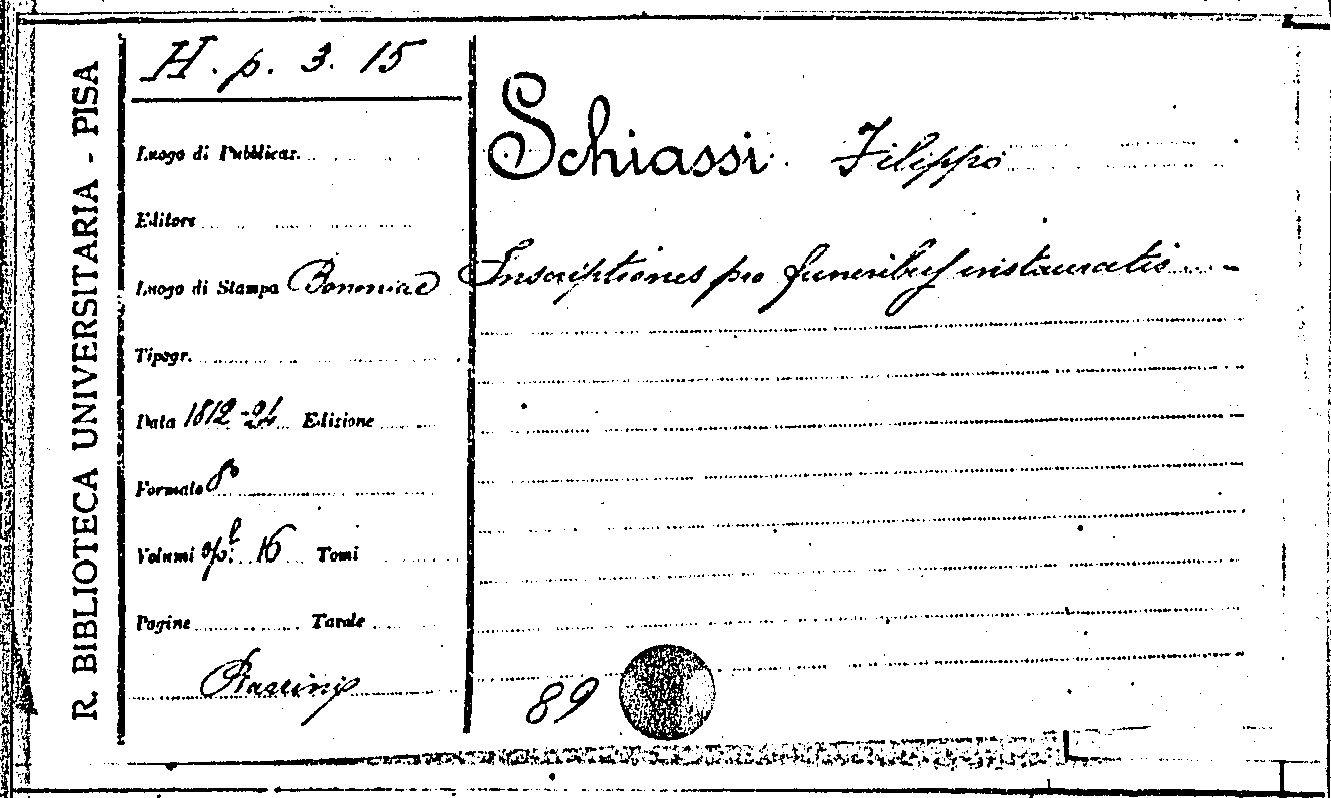 R. BIBLIOTECA UNIVERSITARIA - PISA
H. p. 3. 15
Luogo di Pubblicaz.
Editore
Luogo di Stampa Bononiae
Tipogr.
Data 1812-24 Edizione
Formato 8°
Volumi opl: 16 Tomi
Pagine Tavole
Schiassi Filippo
Inscriptiones pro funeribus instauratis
89